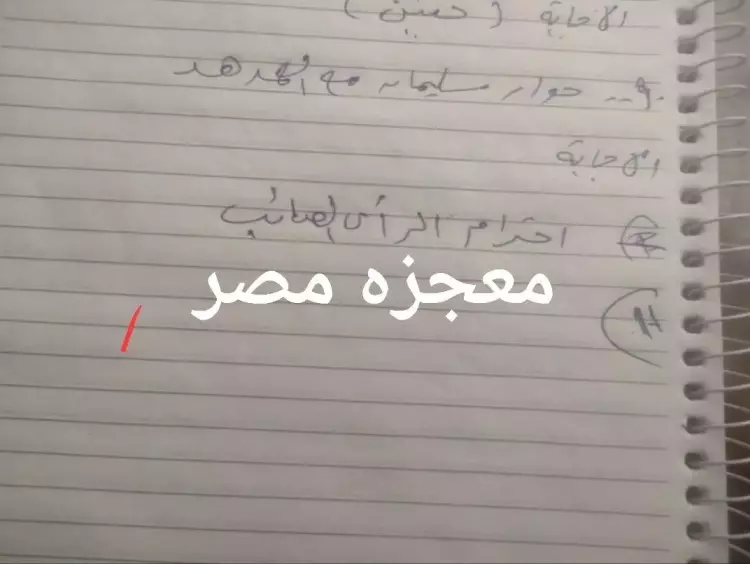 الاجابة (حنين)
٩-- حوار سليمان مع الهدهد
الاجابة
احترام الرأى الصائب
معجزه مصر